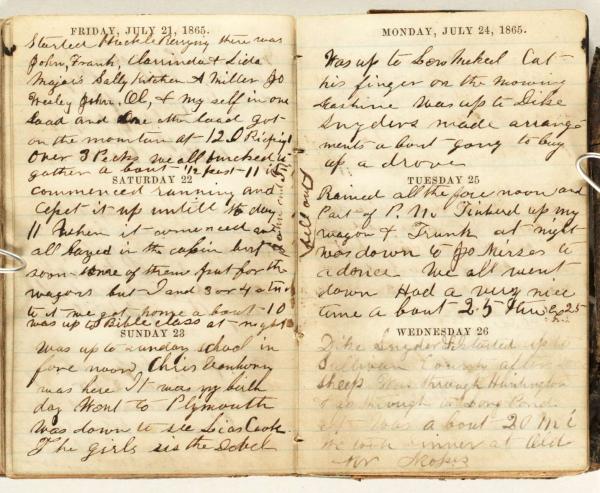 FRIDAY, JULY 21, 1865.
Started Huckle Berrying there was
John, Frank, Clarinda & Lida
Major's Sally Kitchen A Miller Jo
Wesley John, Ol, & my self in one
Load and One other load got
on the mountain at 12.0 Picking
Over 3 Pecks we all bunched
gether a bout 1/2 past 11 it
SATURDAY 22
commenced raining and
Cept it up untill to day
11 When it comenced
all Layed in the cabin but
soon some of them put for the
wagons but I and 3 or 4
to it we got home a bout 10
was up to Bible class at night
SUNDAY 23
Was up to sunday school in
fore noon, Chris
was here It was my birth
day Went to Plymouth
Was down to see Cook
The girls is the
MONDAY, JULY 24, 1865.
Was up to Cut
his finger on the mowing
Machine was up to Dike
Snyders made arrange
ments a bout going to buy
up a drove
TUESDAY 25
Rained all the fore noon and
Part of P. M. Tinkerd up my
wagon & Trunk at night
was down to Jo to
a dance We all went
down Had a very nice
time a bout 25 there 25
WEDNESDAY 26
Dike Snyder & I started up to
Sullivan County after
sheep through Huntington
through
a bout 20 Mi
We took dinner at Old
Mr